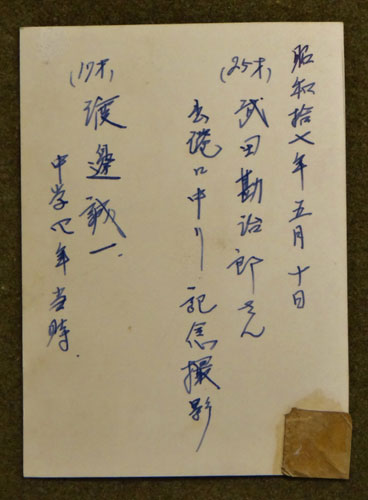 昭和拾七年五月十日
(25才)武田勘治郎さん
記念撮影
(17才)渡邉誠一.
中学四年当時.